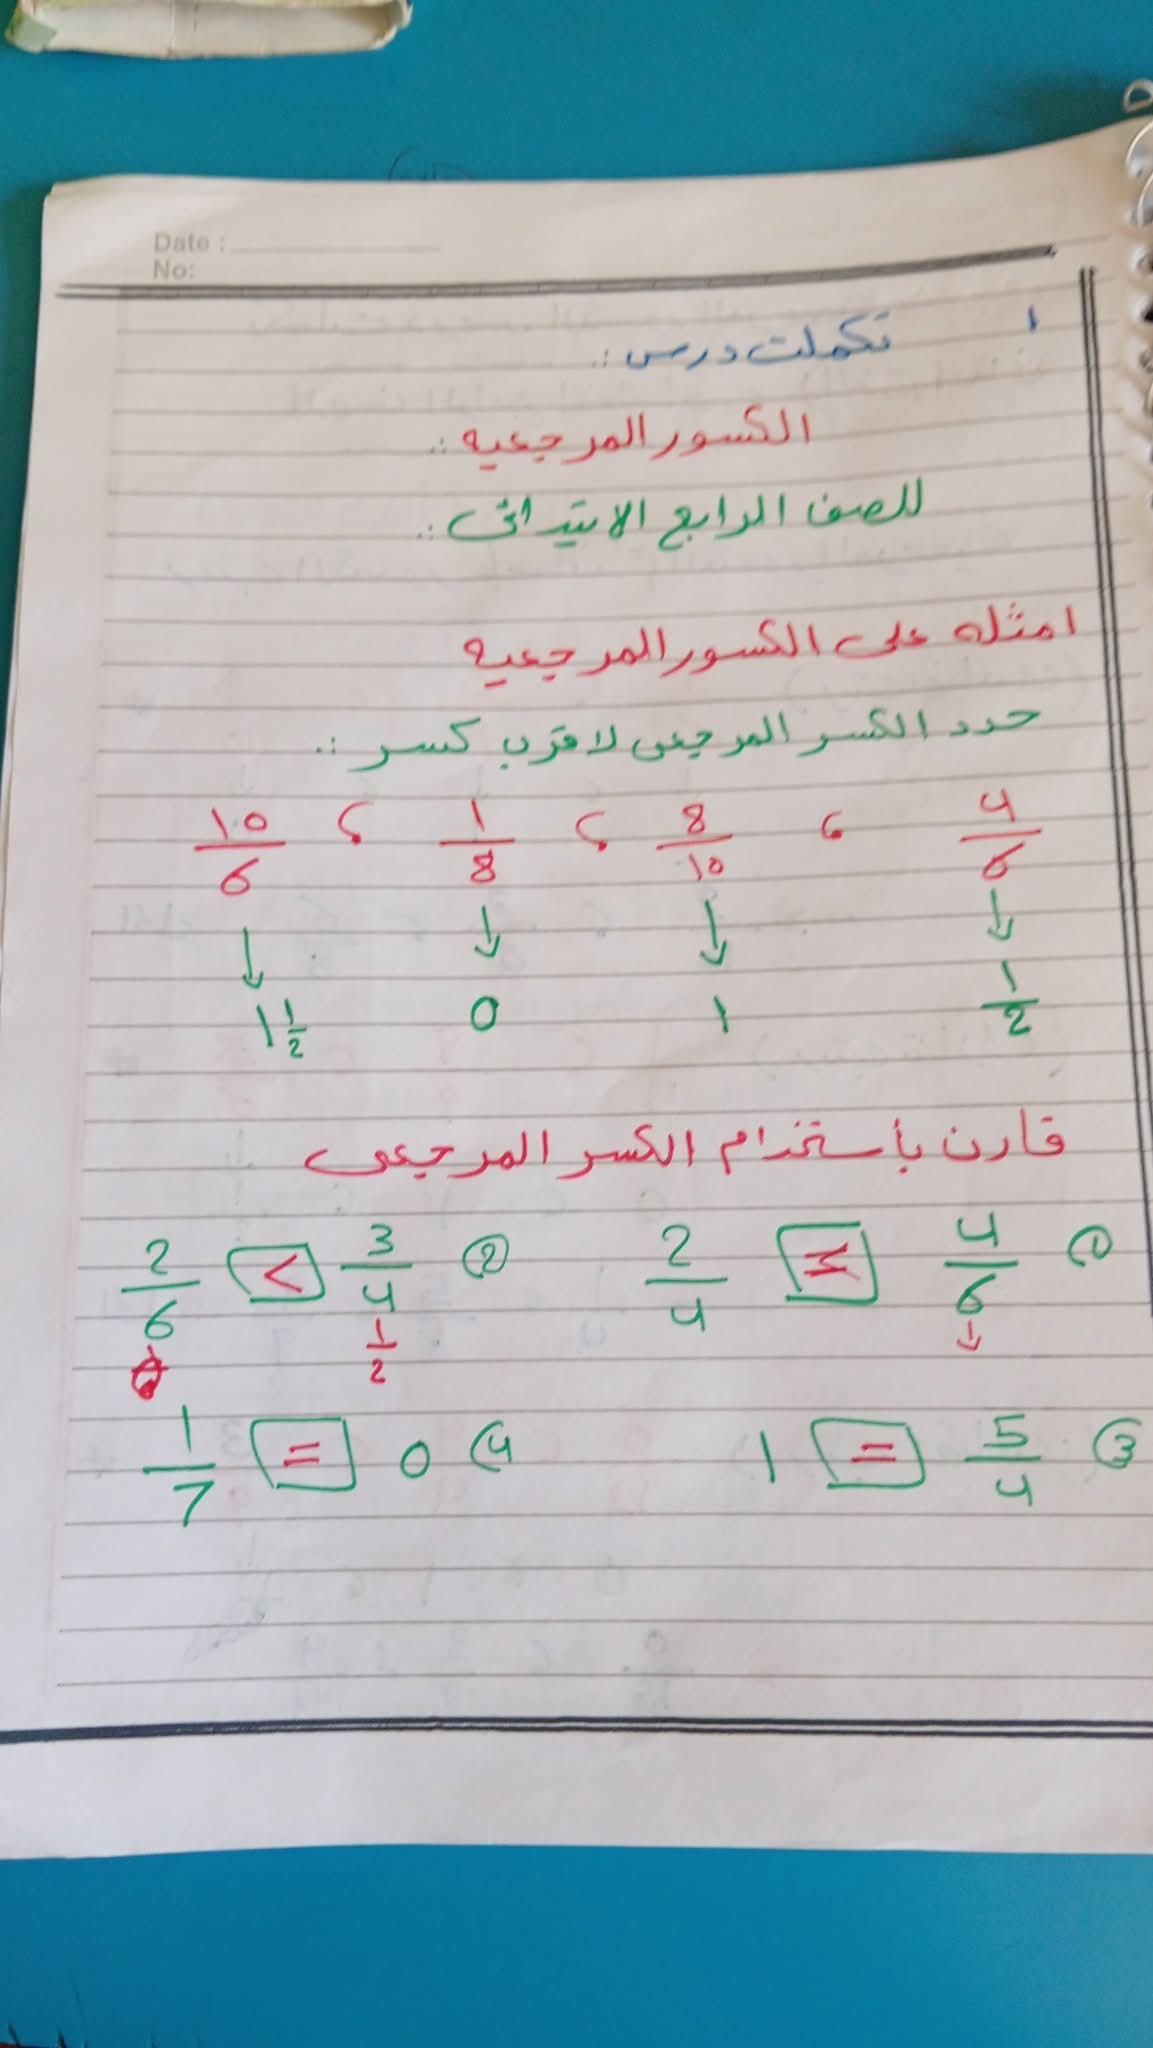 Date :
No:
تكملت درس :.
الكسور المرجعيه :.
للصف الرابع الابتدائى :.
امثله على الكسور المرجعيه
حدد الكسر المرجعى لاقرب كسر :.
4/6 ، 8/10 ، 1/8 ، 10/6
↓ ↓ ↓ ↓
1/2 1 0 1 1/2
قارن بأستخدام الكسر المرجعى
① 4/6 2/4 ② 3/4 > 2/6
↓ 1/2
③ 5/4 = 1 ④ 0 = 1/7